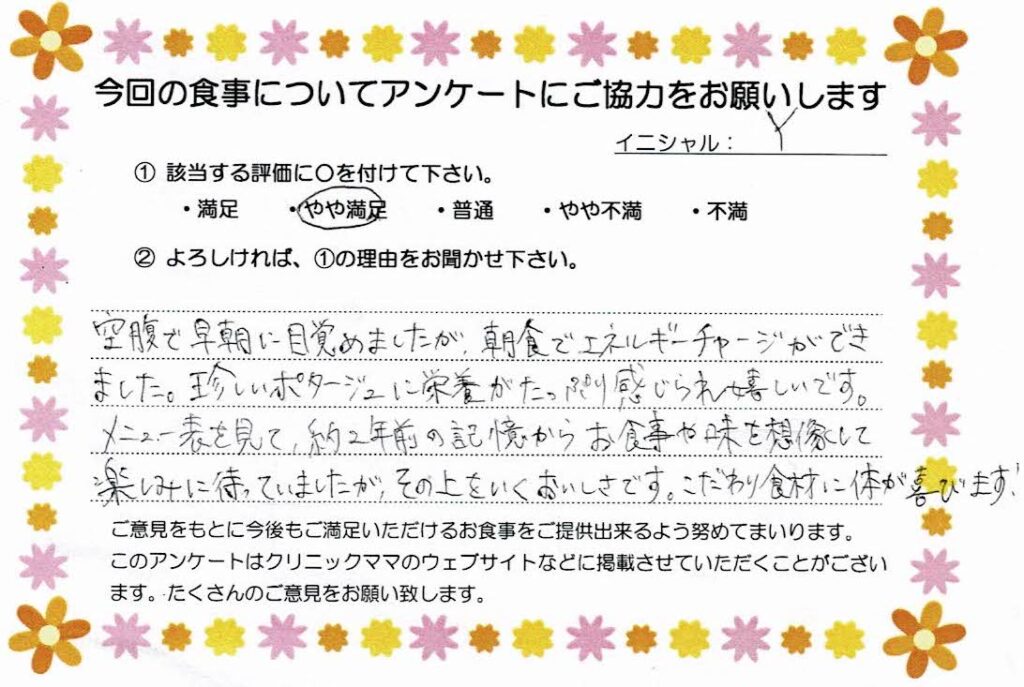 今回の食事についてアンケートにご協力をお願いします
イニシャル: Y
① 該当する評価に〇を付けて下さい。
・満足 ・やや満足 ・普通 ・やや不満 ・不満
② よろしければ、①の理由をお聞かせ下さい。
空腹で早朝に目覚めましたが、朝食でエネルギーチャージができ
ました。珍しいポタージュに栄養がたっぷり感じられ嬉しいです。
メニュー表を見て、約2年前の記憶からお食事や味を想像して
楽しみに待っていましたが、その上をいくおいしさです。こだわり食材に体が喜びます!
ご意見をもとに今後もご満足いただけるお食事をご提供出来るよう努めてまいります。
このアンケートはクリニックママのウェブサイトなどに掲載させていただくことがござい
ます。たくさんのご意見をお願い致します。